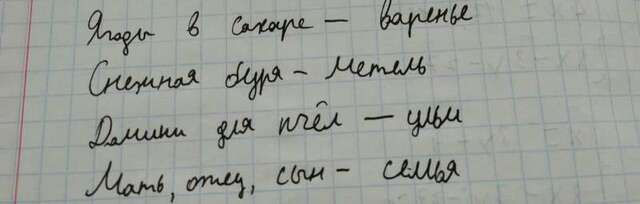 Ягоды в сахаре – варенье
Снежная буря – метель
Домики для пчёл – ульи
Мать, отец, сын – семья